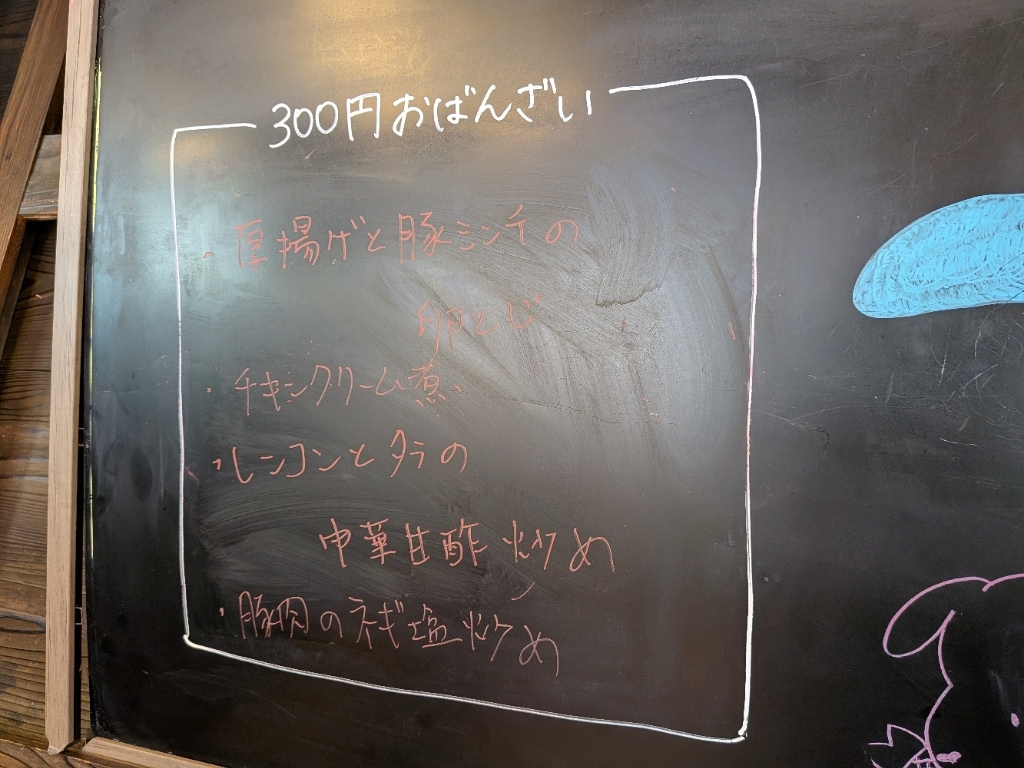 300円おばんざい
・厚揚げと豚ミンチの
卵とじ
・チキンクリーム煮
・レンコンとタラの
中華甘酢炒め
・豚肉のネギ塩炒め